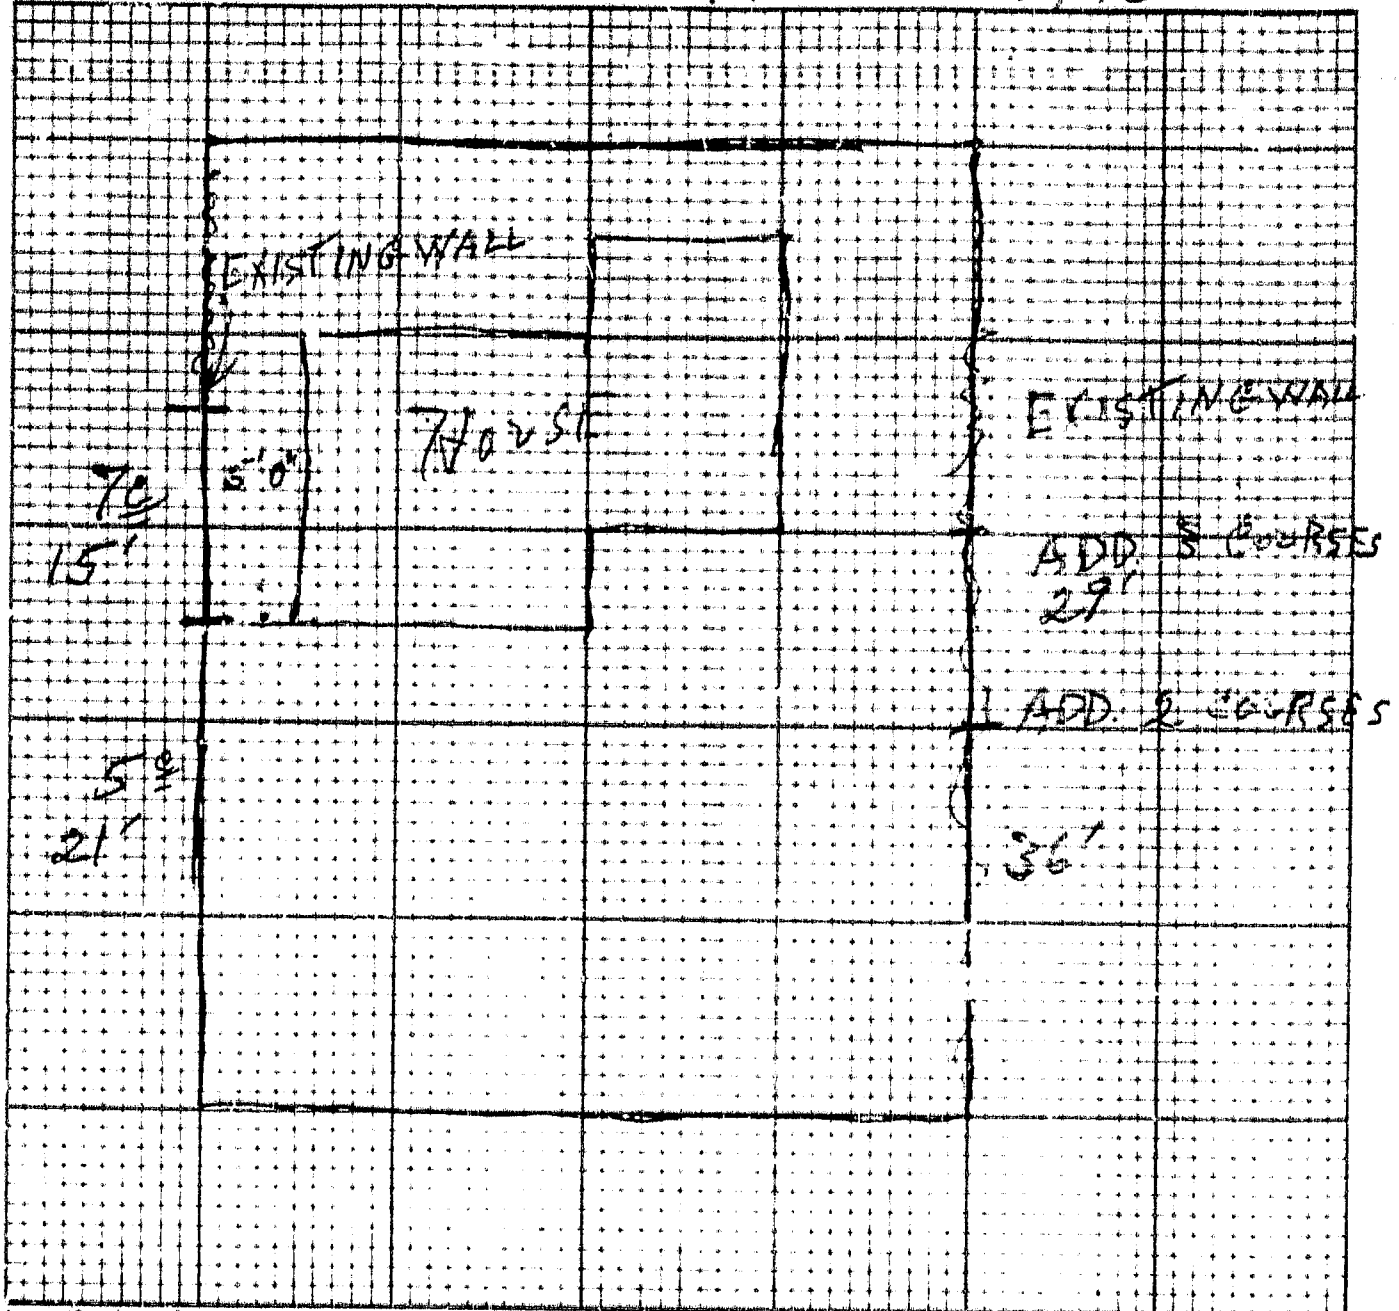 EXISTING WALL
HOUSE
EXISTING WALL
5'-0"
7 c
15'
ADD COURSES
29'
ADD. 2 COURSES
5 c
21'
36'